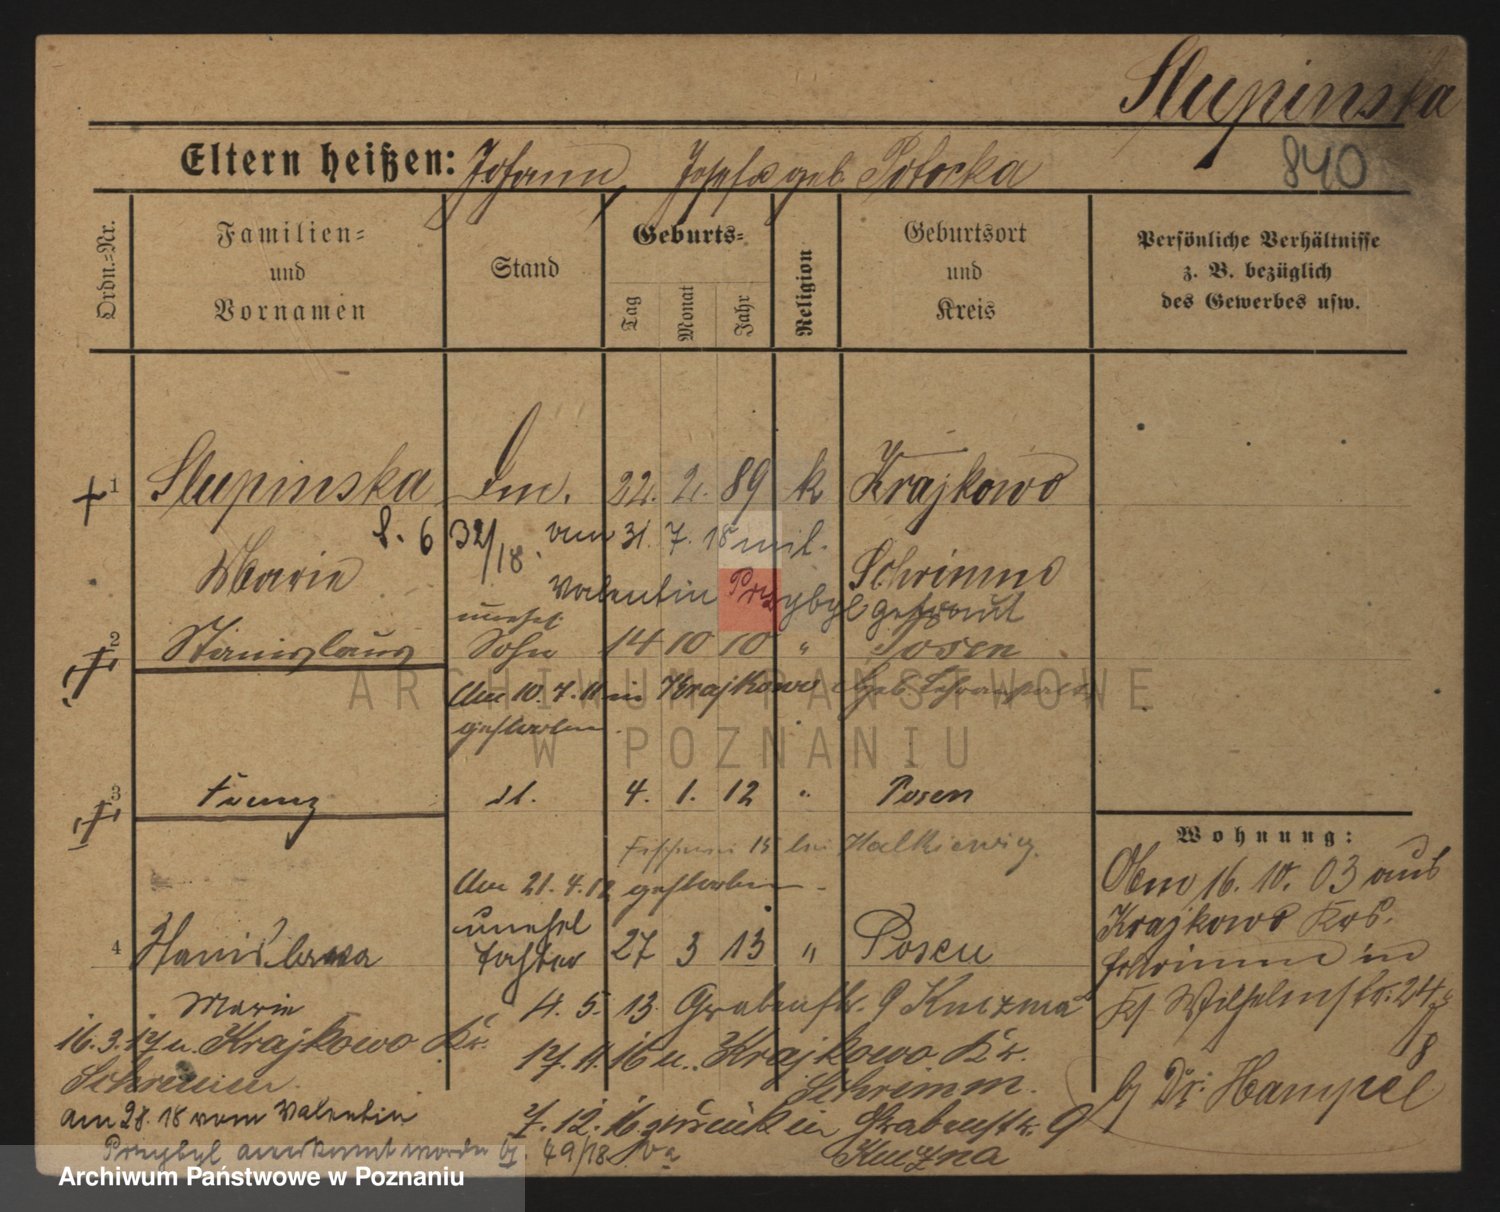 Slupinska
840
Eltern heißen: Johann, Josefa geb. Potocka
Ordn.-Nr.
Familien- und Vornamen
Stand
Geburts-
Tag
Monat
Jahr
Religion
Geburtsort und Kreis
Persönliche Verhältnisse z. B. bezüglich des Gewerbes usw.
1 Slupinska 22. 2. 89 k Krajkowo
S. 6 32/18. vom 31. 7. 18 mit
Marie Schrimm
Valentin Przybyl getraut
unehel.
2 Stanislaus Sohn 14 10 10 " Posen
Am 10. 7. 11 in Krajkowo
gestorben.
3 Franz 4. 1. 12 " Posen
15 bei
Am 21. 4. 12 gestorben.
unehel
4 Stanislawa Tochter 27 3 13 " Posen
Marie 4. 5. 13. Grabenstr. 9
16. 3. 17 u. Krajkowo Kr. 17. 11. 16 u. Krajkowo Kr.
Schrimm. Schrimm.
am 28. 18 vom Valentin 7. 12. 16 zurück in Grabenstr. 9
Przybyl anerkannt worden 49/18
Wohnung:
16. 10. 03 aus
Krajkowo Krs.
Schrimm in
Wilhelmstr. 24
b/ Dr. Hampel
ARCHIWUM PAŃSTWOWE
W POZNANIU
Archiwum Państwowe w Poznaniu